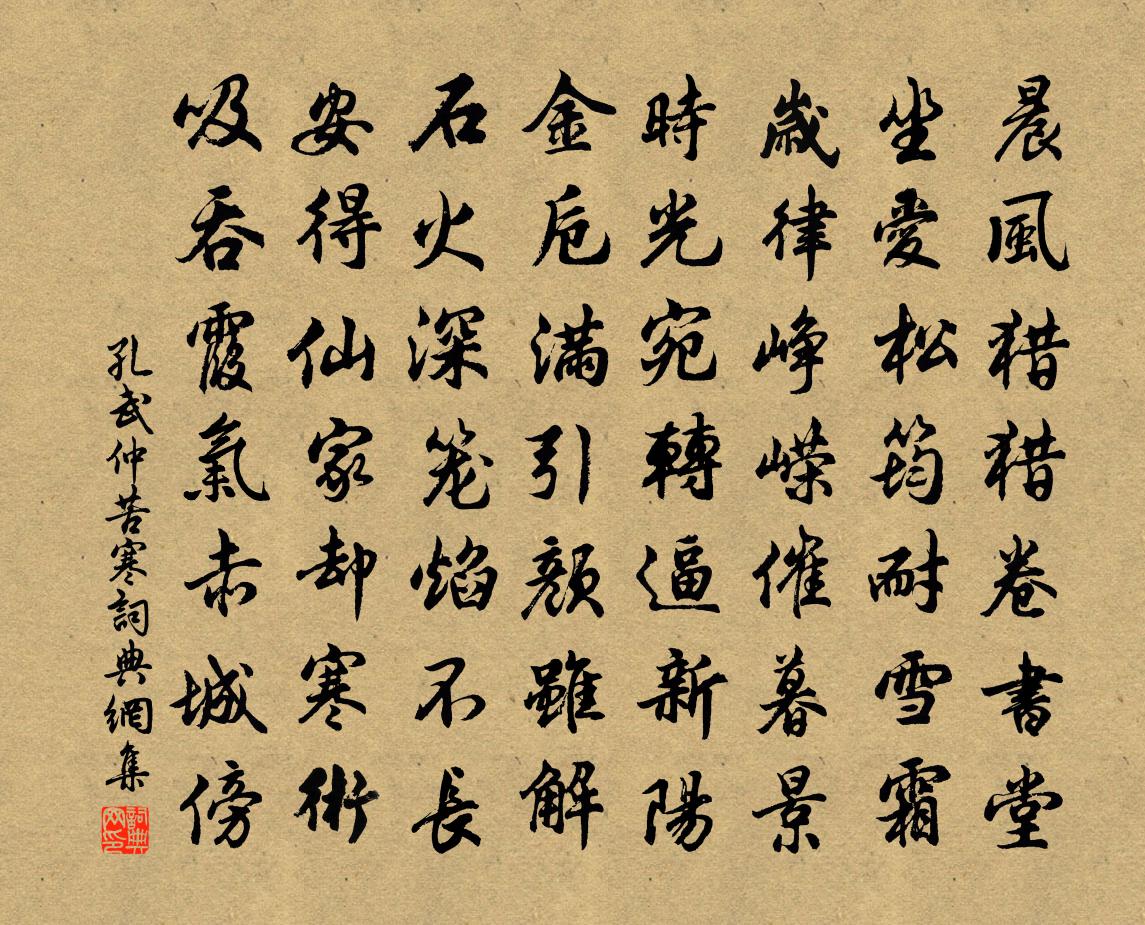 晨風猎猎卷書堂
坐愛松筠耐雪霜
歲律峥嵘催暮景
時光宛轉逼新陽
金卮满引顏雖解
石火深笼焰不長
安得仙家却寒術
吸吞霞氣赤城傍
孔武仲苦寒詞典網集
詞典网印